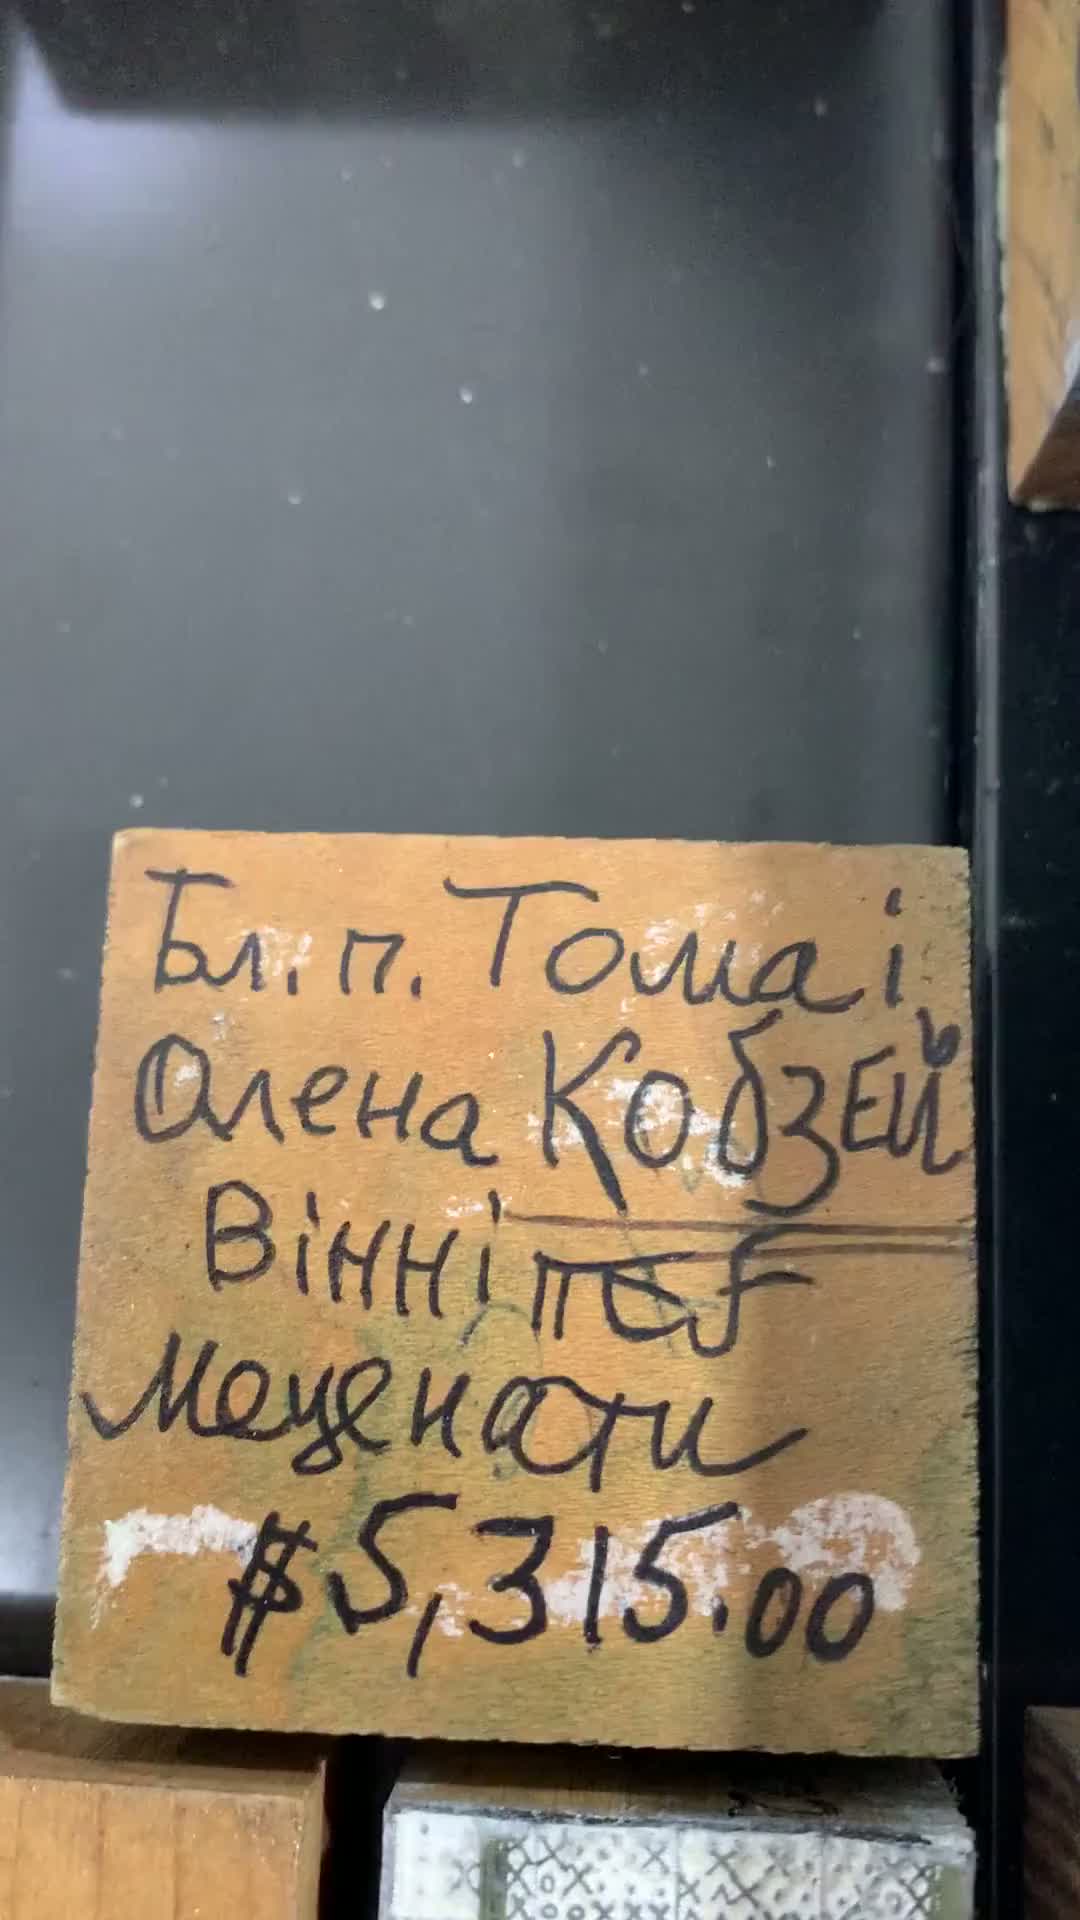 Бл. п. Тома і
Олена Кобзей
Вінніпеґ
Меценати
$5,315.00